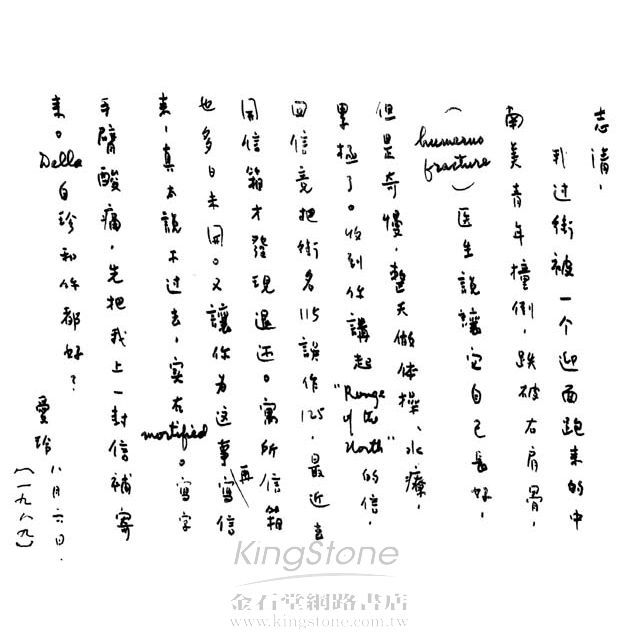 志清，
我过街被一个迎面跑来的中
南美青年撞倒，跌破右肩骨，
（humerus fracture）医生說讓它自己長好，
但是奇慢，整天做体操、水療，
累極了。收到你講起"Rouge of the North"的信，
回信竟把街名115誤作125，最近去
開信箱才發現退还。寓所信箱
也多日未開。又讓你为这事再寫信
来，真太說不过去，实在mortified。寫字
手臂酸痛，先把我上一封信補寄
来。Della自珍和你都好？
愛玲 八月六日，
（一九八九）
KingStone
金石堂網路書店
www.kingstone.com.tw